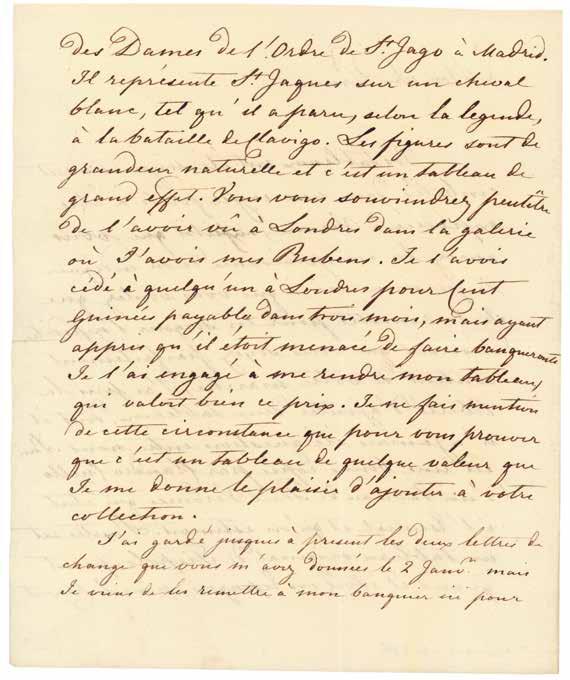 des Dames de l'Ordre de St. Jago à Madrid.
Il représente St. Jaques sur un cheval
blanc, tel qu'il a paru, selon la legende,
à la bataille de Clavigo. Les figures sont de
grandeur naturelle et c'est un tableau de
grand effet. Vous vous souviendrez peutêtre
de l'avoir vû à Londres dans la galerie
où J'avois mes Rubens. Je l'avois
cédé à quelqu'un à Londres pour Cent
Guinées payable dans trois mois, mais ayant
appris qu'il étoit menacé de faire banqueroute
Je l'ai engagé à me rendre mon tableau,
qui valoit bien ce prix. Je ne fais mention
de cette circonstance que pour vous prouver
que c'est un tableau de quelque valeur que
Je me donne le plaisir d'ajouter à votre
collection.
J'ai gardé jusques à present les deux lettres de
change que vous m'avez données le 2 Janvr. mais
Je viens de les remettre à mon banquier ici pour